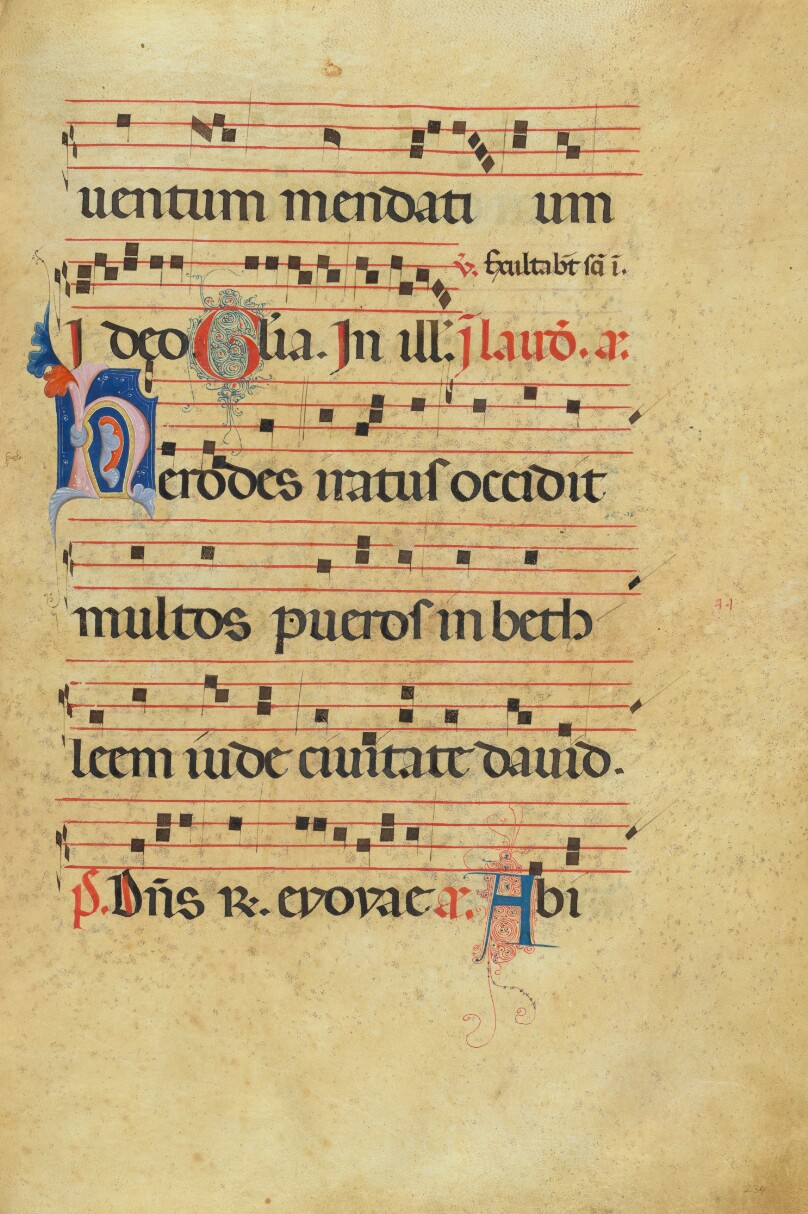 uentum mendati um
v. Exultabt sci i.
I deo Glia. In ill. I laud. a.
Herodes iratus occidit
multos pueros in beth
leem iude ciuitate dauid.
p. Dns R. evovae a. Abi